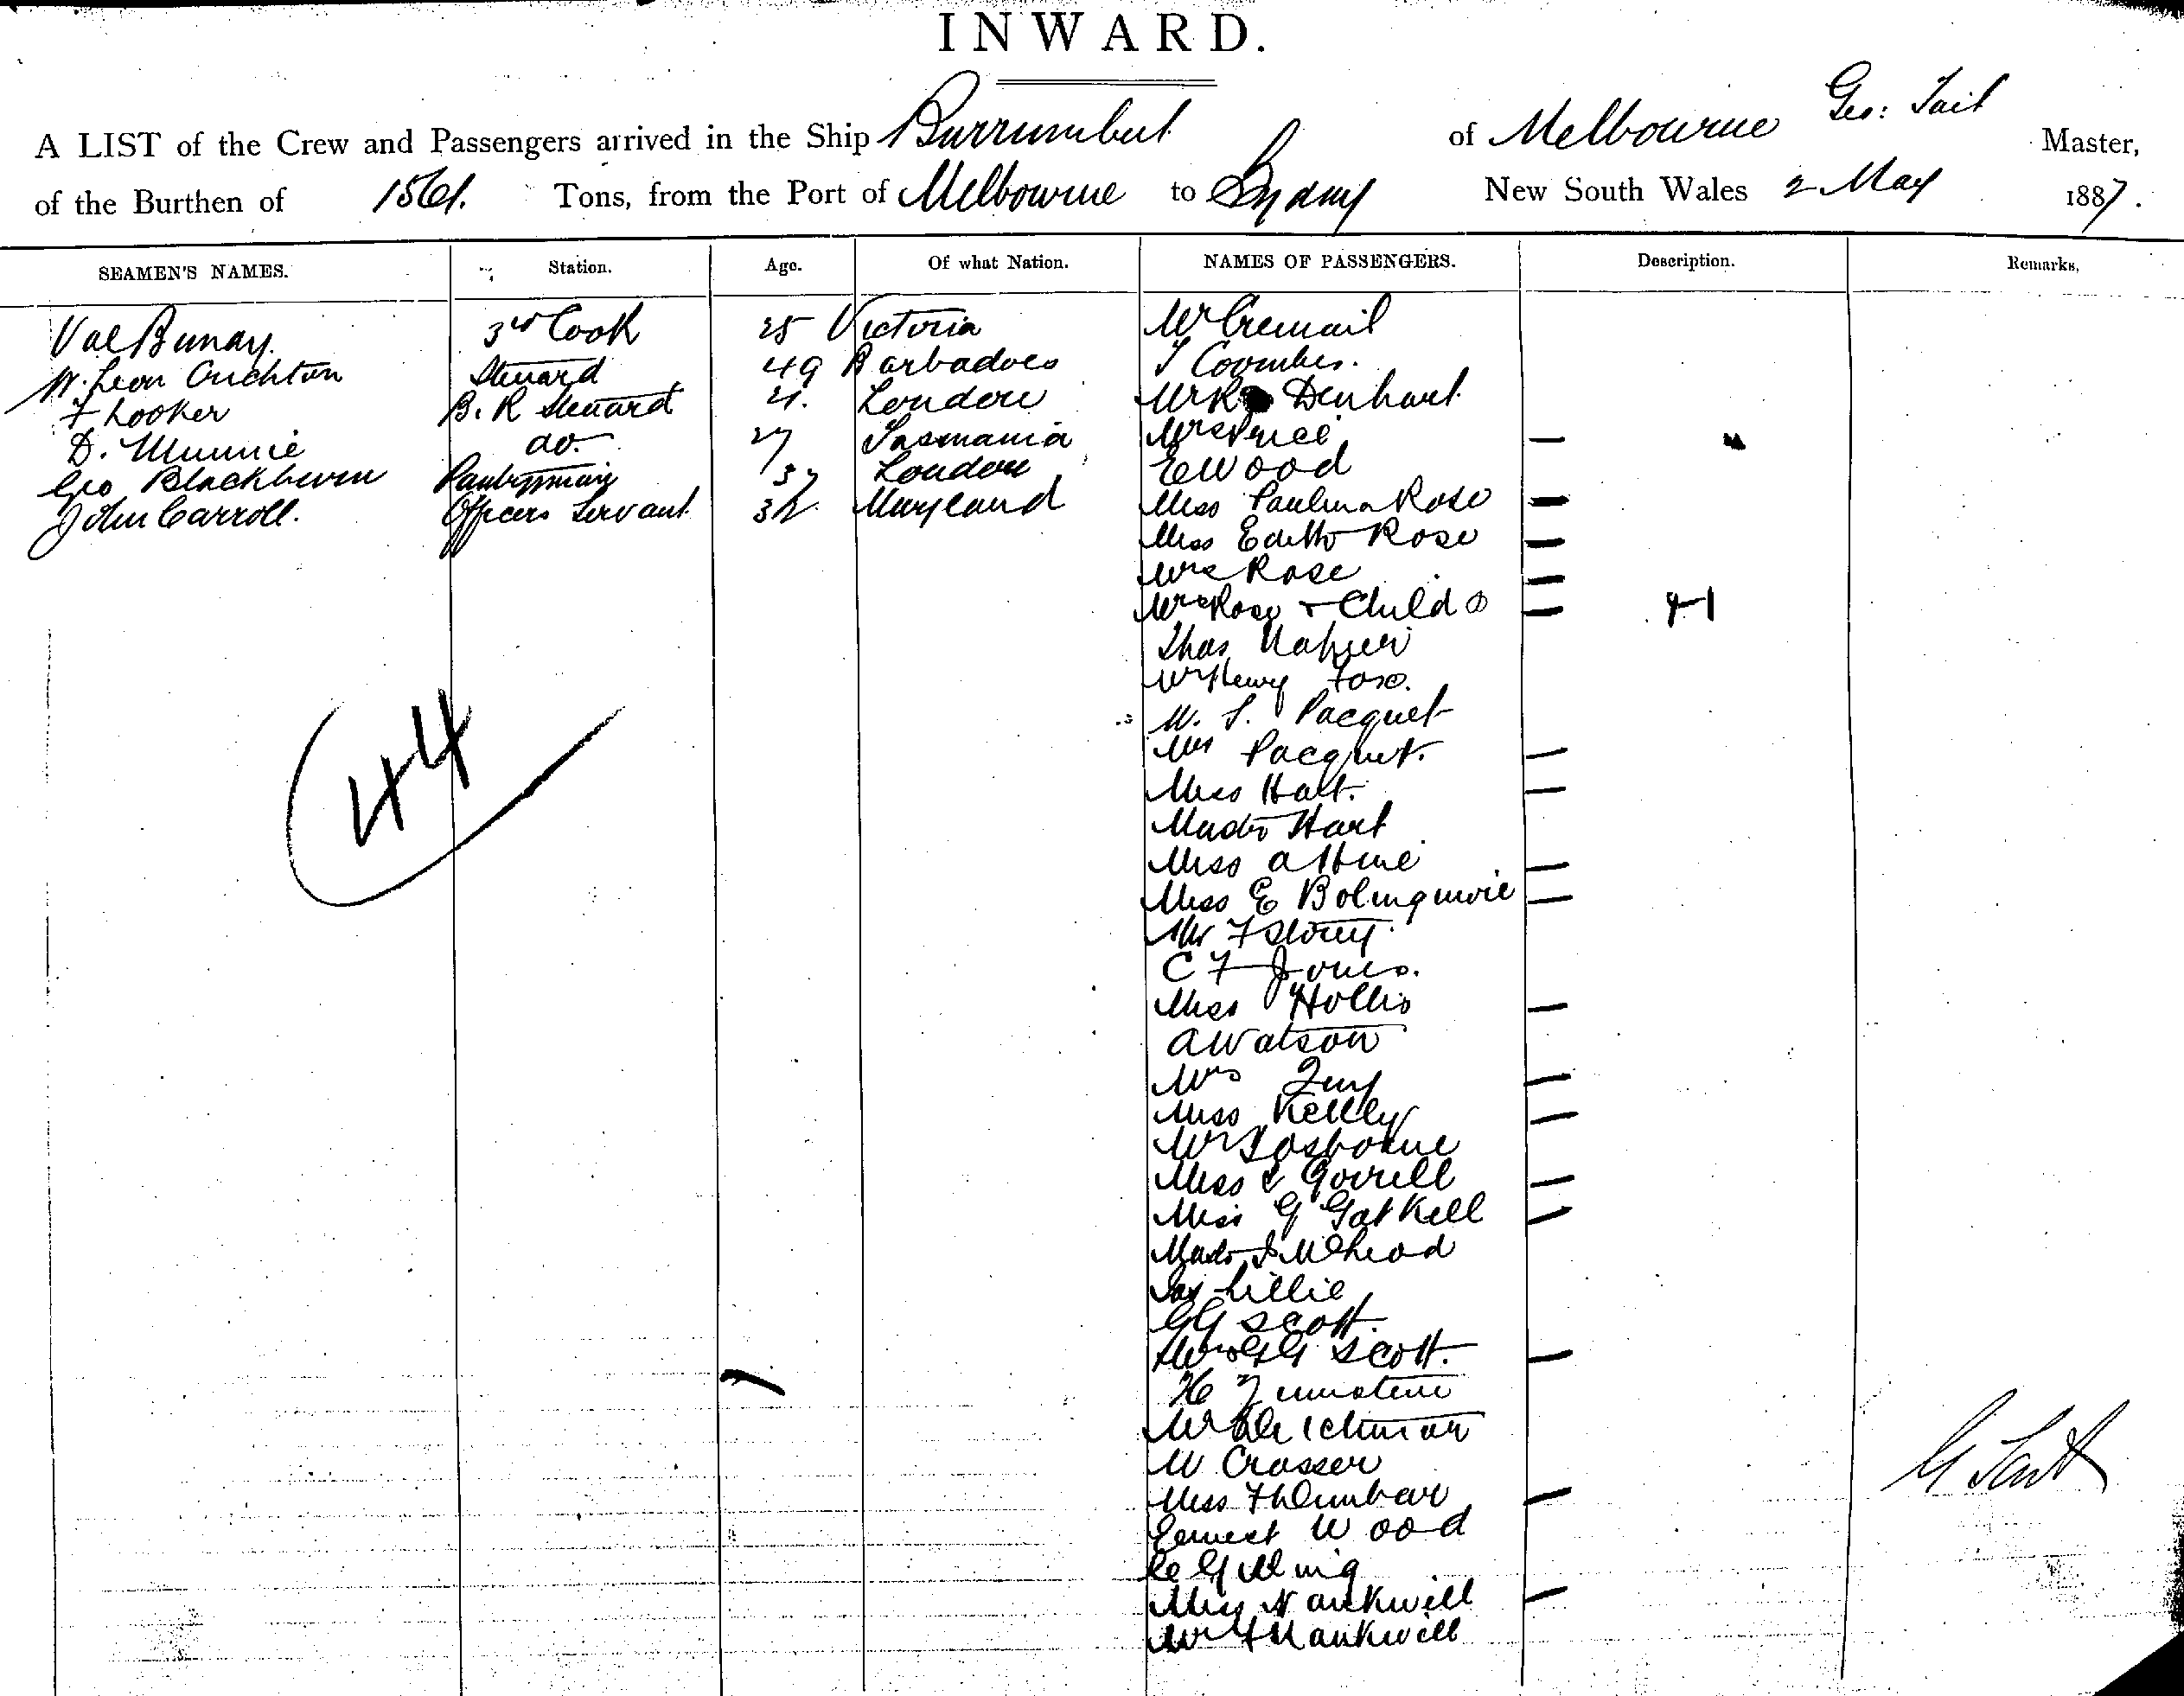 INWARD.
A LIST of the Crew and Passengers arrived in the Ship Burrumbeet of Melbourne Geo: Tait Master,
of the Burthen of 1561. Tons, from the Port of Melbourne to Sydney New South Wales 2 May 1887.
SEAMEN'S NAMES. Station. Age. Of what Nation. NAMES OF PASSENGERS. Description. Remarks,
Val Bunay. 3rd Cook 25 Victoria Mr
W. Leon Crichton Steuard 49 Barbadoes T Coombes.
F Looker B. R Steuard 21. London Mr R Denhart
D. Munnie do. 27 Tasmania Mrs Price
Geo Blackburn Pantryman 37 London E Wood
John Carroll. Officers Servant 32 Maryland Miss Paulina Rose
Miss Edith Rose
Mrs Rose
Mrs Rose + Child
Thos Napier
Mr Henry Foxo.
M. S. Pacquet
Mrs Pacquet.
Miss Hart.
Mastr Hart
Miss A Hine
Miss E
Mr F Storey
C F Jones.
Miss Hollis
A Watson
Mrs
Miss Kelly
Mr Losborne
Miss Gorrell
Miss G Gatkell
Mastr McLeod
Jas Lillie
G G Scott.
Mrs G G Scott.
H Zumstein
Mr
W Crosser
Miss F Dunbar
Ernest Wood
Miss Nankwill
Mr F Nankwill
44
G Tait